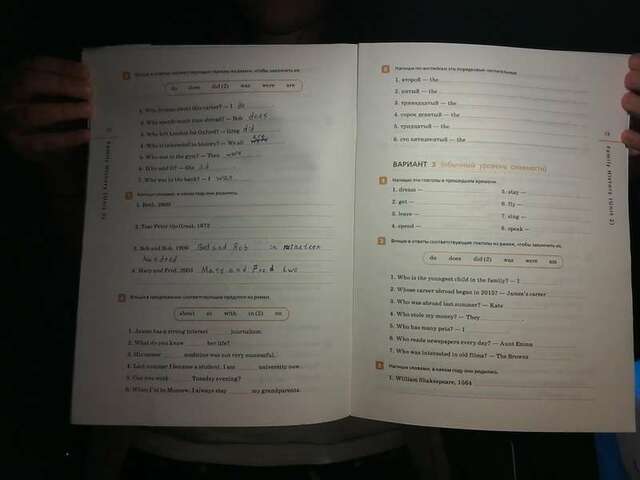 Впиши в ответы соответствующие глаголы из рамки, чтобы закончить их.
do does did (2) was were are
1. Who dreams about this career? — I do
2. Who spends much time abroad? — Bob does
3. Who left London for Oxford? — Greg did
4. Who is interested in history? — We all are
5. Who was in the gym? — They were
6. Who said it? — She did
7. Who was in the back? — I was
Напиши словами, в каком году они родились.
1. Beth, 2000
2. Tsar Peter the Great, 1672
3. Bob and Rob, 1900 Bob and Rob in nineteen
hundred
4. Mary and Fred, 2003 Mary and Fred two
Впиши в предложения соответствующие предлоги из рамки.
about at with in (2) on
1. Jason has a strong interest journalism.
2. What do you know her life?
3. His career medicine was not very successful.
4. Last summer I became a student. I am university now.
5. Can you work Tuesday evening?
6. When I'm in Moscow, I always stay my grandparents.
Family History (Unit 2)
6 Напиши по-английски эти порядковые числительные.
1. второй — the
2. пятый — the
3. тринадцатый — the
4. сорок девятый — the
5. тридцатый — the
6. сто пятидесятый — the
ВАРИАНТ 3 (обычный уровень сложности)
1 Напиши эти глаголы в прошедшем времени.
1. dream — 5. stay —
2. get — 6. fly —
3. leave — 7. sing —
4. spend — 8. speak —
2 Впиши в ответы соответствующие глаголы из рамки, чтобы закончить их.
do does did (2) was were am
1. Who is the youngest child in the family? — I
2. Whose career abroad began in 2015? — James's career
3. Who was abroad last summer? — Kate
4. Who stole my money? — They
5. Who has many pets? — I
6. Who reads newspapers every day? — Aunt Emma
7. Who was interested in old films? — The Browns
3 Напиши словами, в каком году они родились.
1. William Shakespeare, 1564
Family History (Unit 2)